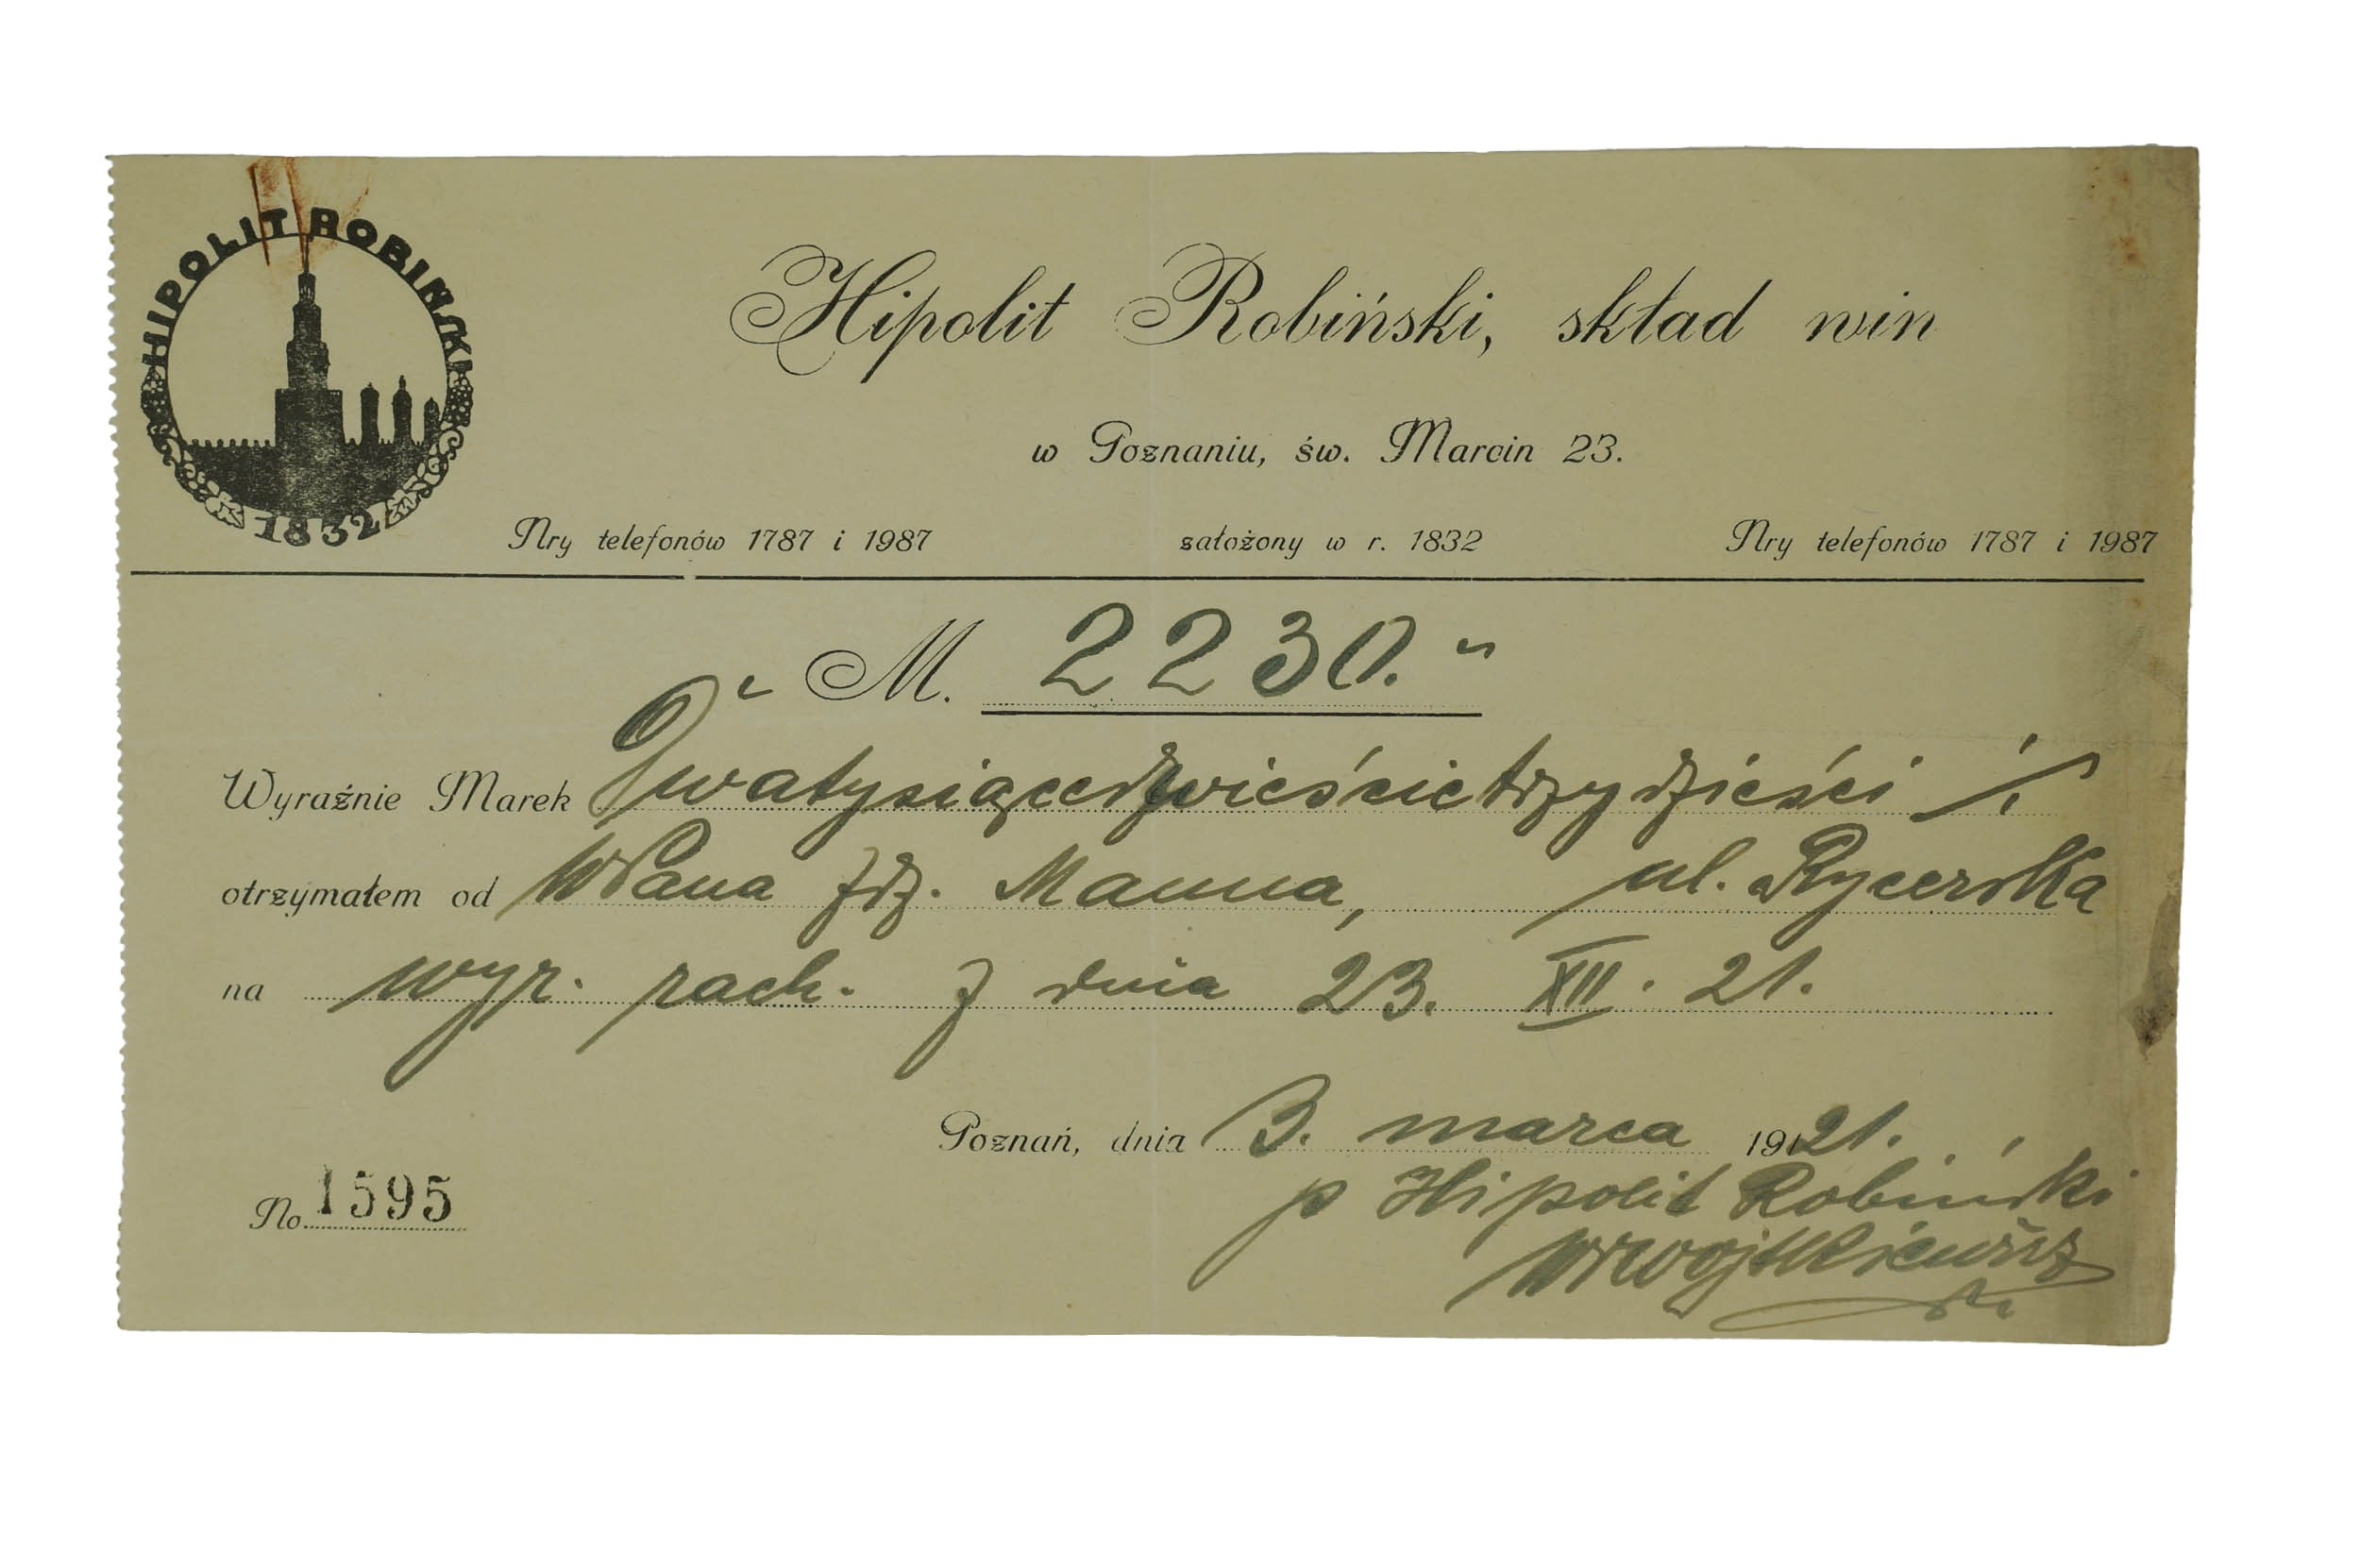 HIPOLIT ROBIŃSKI
1832
Hipolit Robiński, skład win
w Poznaniu, św. Marcin 23.
Nry telefonów 1787 i 1987 założony w r. 1832 Nry telefonów 1787 i 1987
M. 2230.
Wyraźnie Marek Dwatysiącedwieścietrzydzieści
otrzymałem od WPana Manna, ul. Rycerska
na wyr. rach. z dnia 23. XII. 21.
Poznań, dnia 3. marca 1921.
No 1595
p Hipolit Robiński